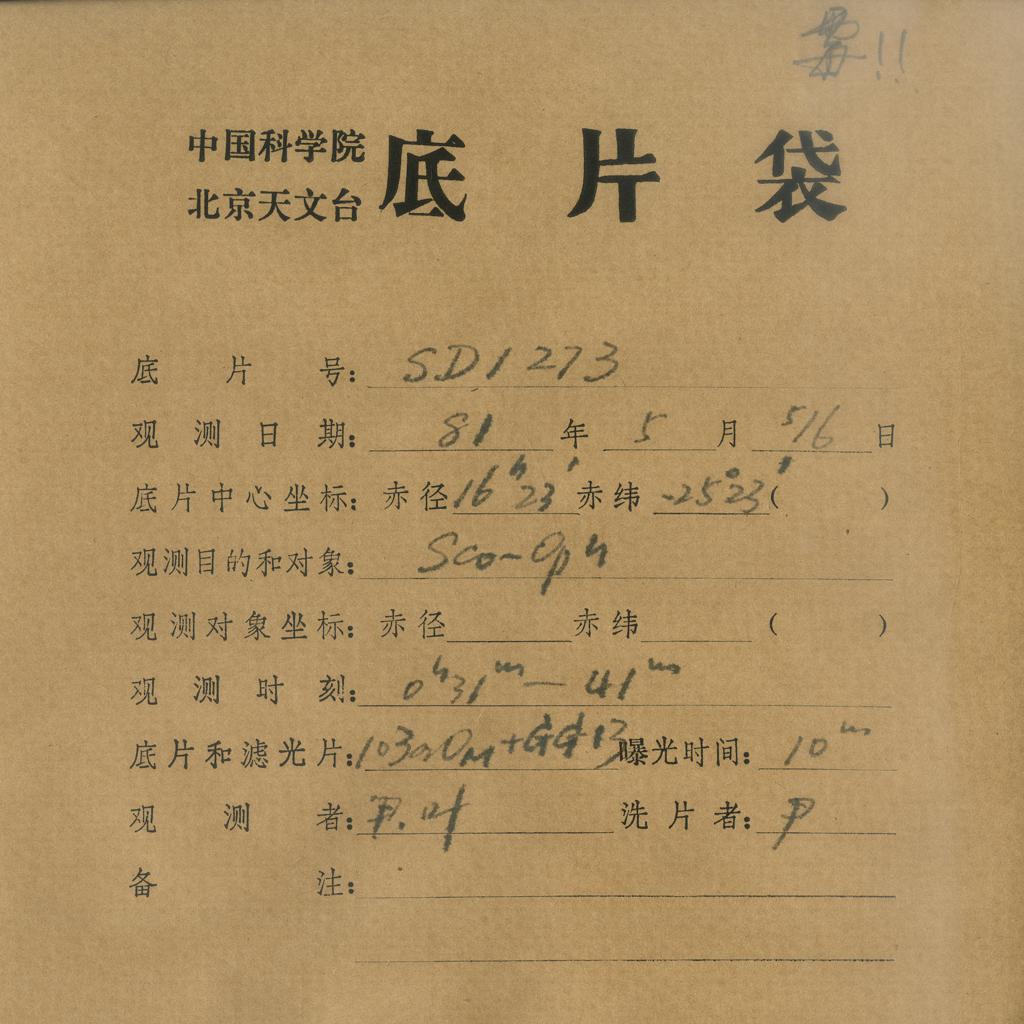 !!
中国科学院
北京天文台
底片袋
底片号：SD1273
观测日期：81年5月5/6日
底片中心坐标：赤径16ʰ23′赤纬-25°23′(  )
观测目的和对象：Sco-Oph
观测对象坐标：赤径 赤纬 (  )
观测时刻：0ʰ31ᵐ—41ᵐ
底片和滤光片：103aOM+GG13曝光时间：10ᵐ
观测者：尹.叶 洗片者：尹
备注：